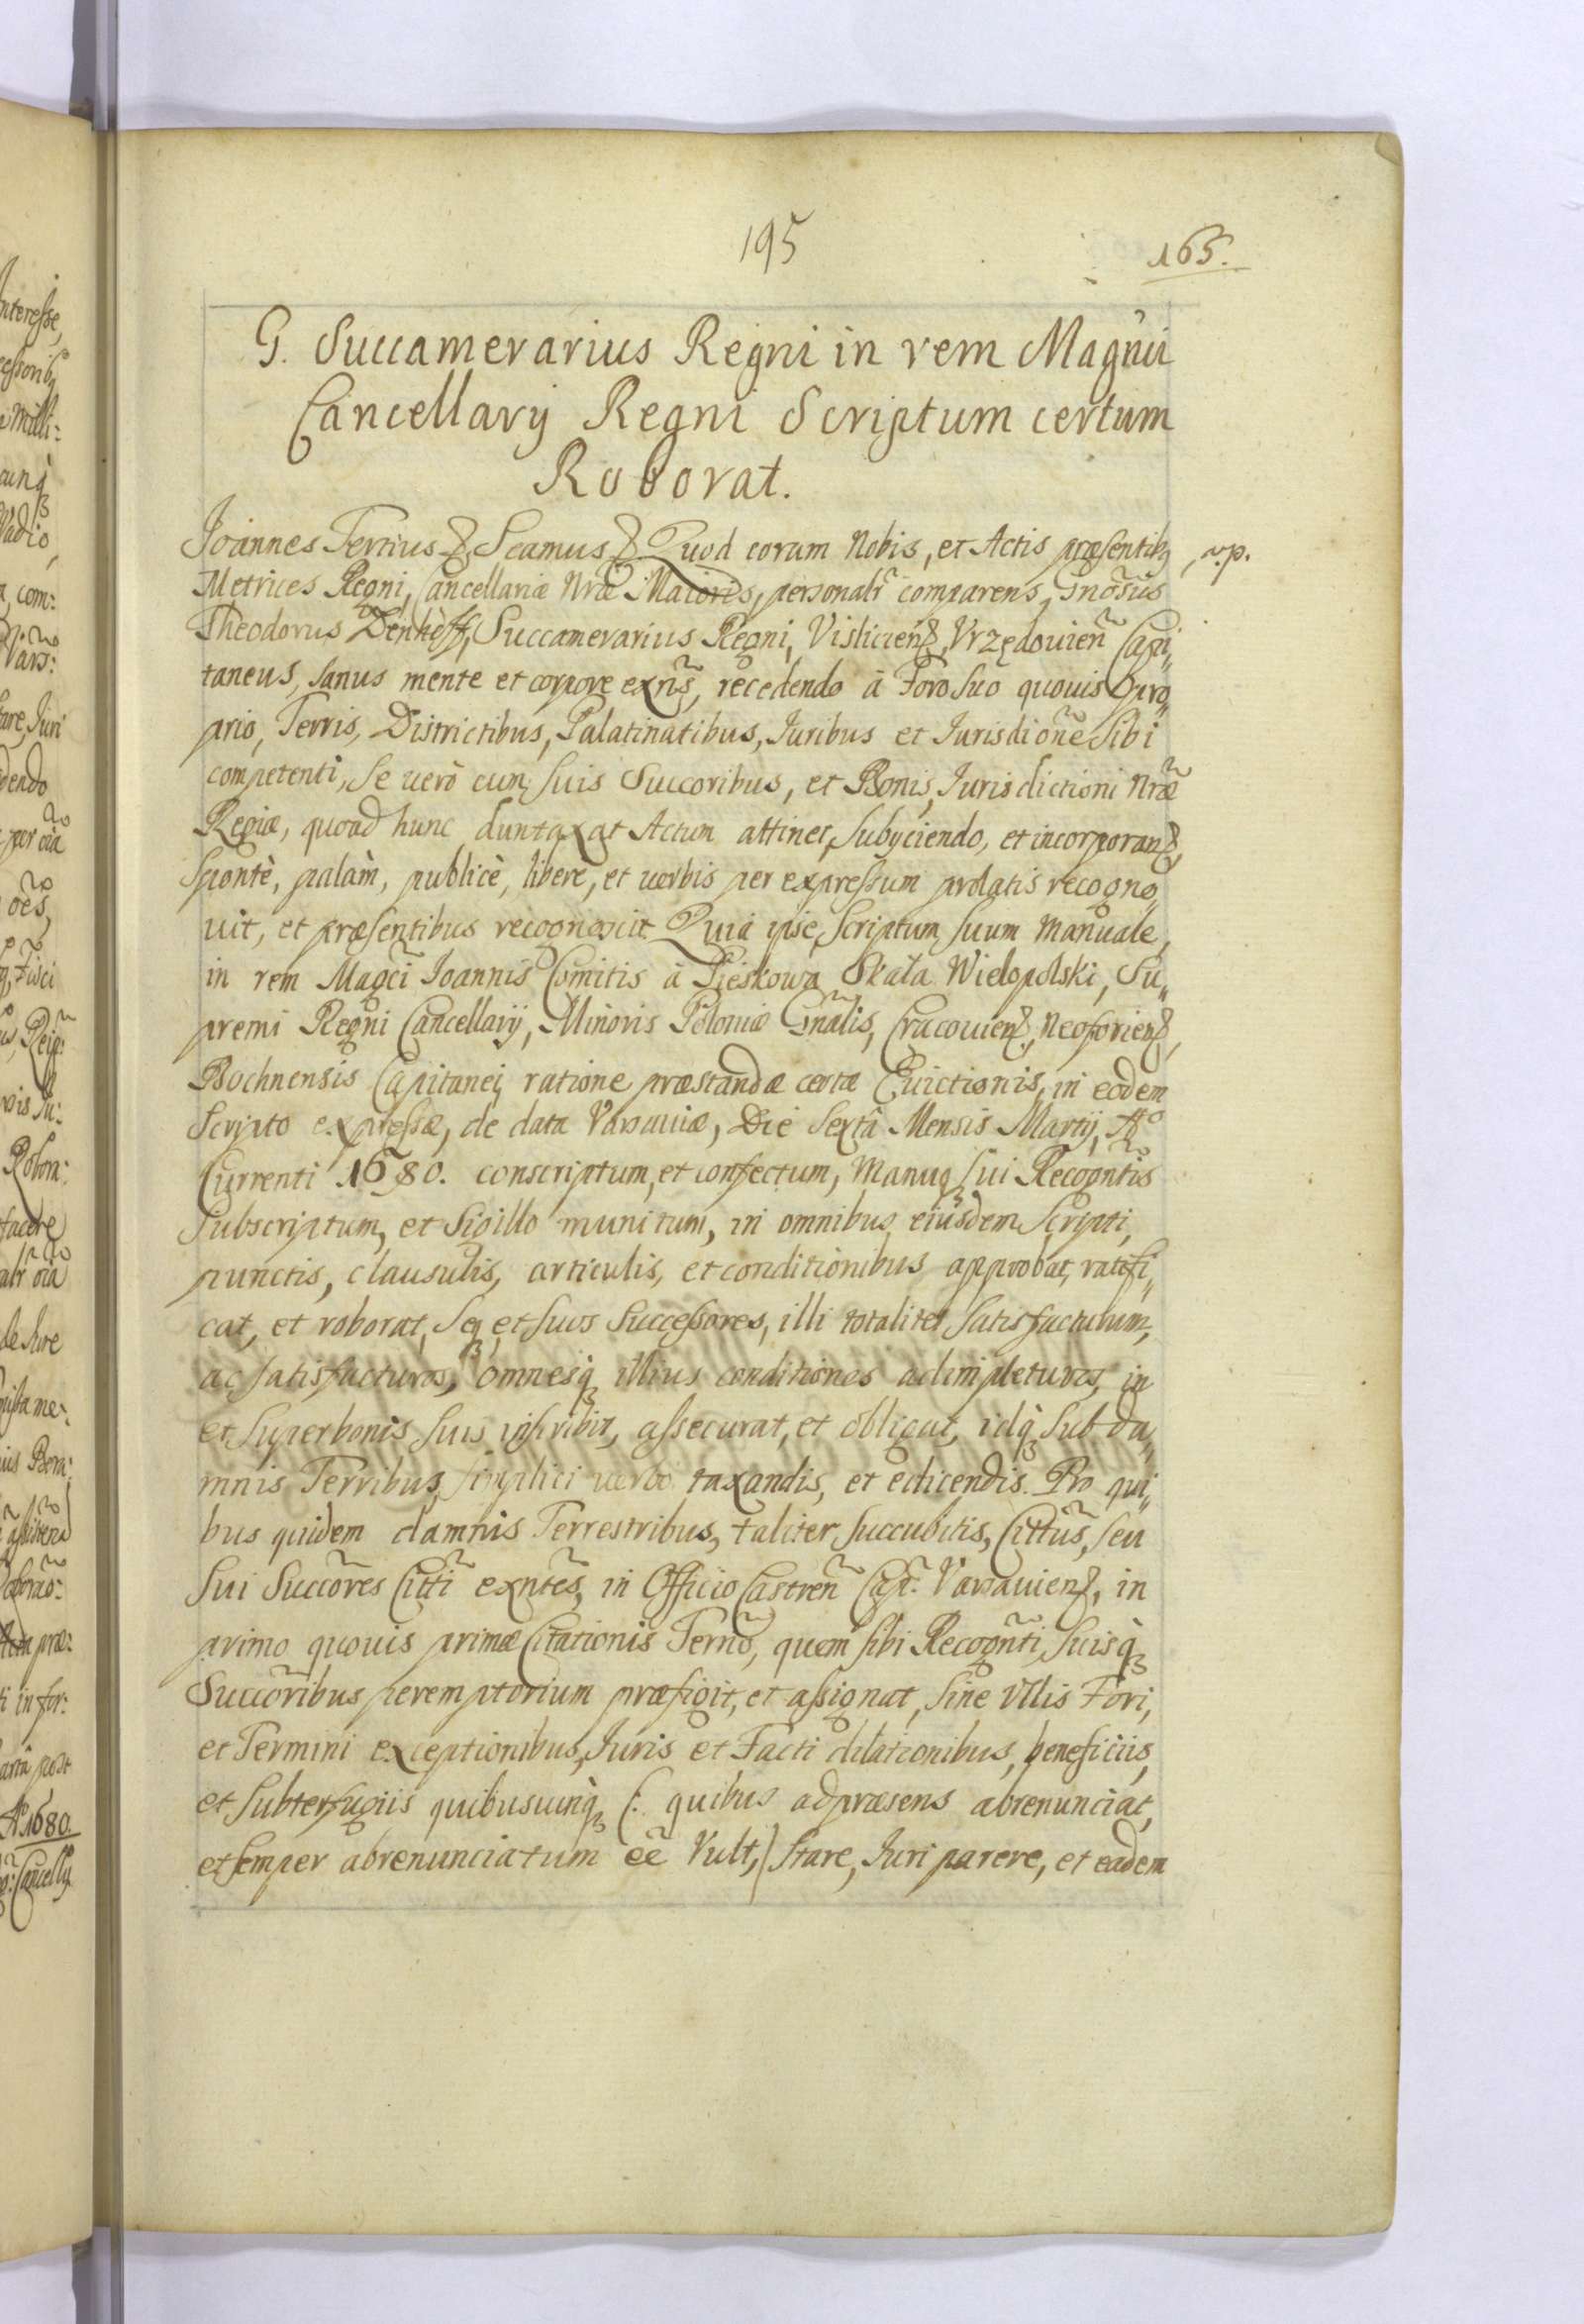 195
165.
G. Succamerarius Regni in rem Magnci
Cancellarij Regni Scriptum certum
Roborat.
Joannes Tertius &. Scamus &. Quod coram Nobis, et Actis præsentibq v.p.
Metrices Regni, Cancellariæ Nræ Maioris, personalr comparens, Gnosus
Theodorus Denhoff, Succamerarius Regni, Vislicien&, Vrzędouien Capi„
taneus, sanus mente et corpore exns, recedendo à Foro Suo quouis pro„
prio, Terris, Districtibus, Palatinatibus, Juribus et Jurisdione Sibi
competenti, Se verò cum suis Succoribus, et Bonis, Jurisdictioni Nræ
Regiæ, quoad hunc duntaxat Actum attinet, Subijciendo, et incorporan&,
Spontè, palàm, publicè, libere, et verbis per expressum prolatis recogno„
uit, et præsentibus recognoscit. Quia ipse, Scriptum suum Manuale,
in rem Magci Joannis Comitis à Pieskowa Skała Wielopolski, Su„
premi Regni Cancellarij, Minoris Poloniæ Gnalis, Cracouien&, Neoforien&,
Bochnensis Capitanei, ratione præstandæ certæ Euictionis, in eodem
Scripto expressæ, de data Varsauiæ, Die Sextâ Mensis Martij, Ao
Currenti 1680. conscriptum, et confectum, Manuq sui Recogntis
Subscriptum, et Sigillo munitum, in omnibus eiusdem Scripti,
punctis, clausulis, articulis, et conditionibus approbat, ratifi„
cat, et roborat, Seq, et suos Successores, illi totaliter satisfacturum,
ac satisfacturos, omnesq illius conditiones adimpleturos, in
et super bonis suis inscribit, assecurat, et obligat, idq sub da„
mnis Terribus, simplici verbo taxandis, et edicendis. Pro qui„
bus quidem damnis Terrestribus, taliter succubitis, Cittus, seu
sui Succores Citti exntes, in Officio Castren Cap. Varsauien&, in
primo quouis primæ Citationis Termo, quem sibi Recognti, suisq
Succoribus peremptorium præfigit, et assignat, sine Vllis Fori,
et Termini exceptionibus, Juris et Facti dilationibus, beneficiis,
et subterfugiis quibusuinq (: quibus ad præsens abrenunciat,
et semper abrenunciatum ee Vult,) Stare, Juri parere, et eadem